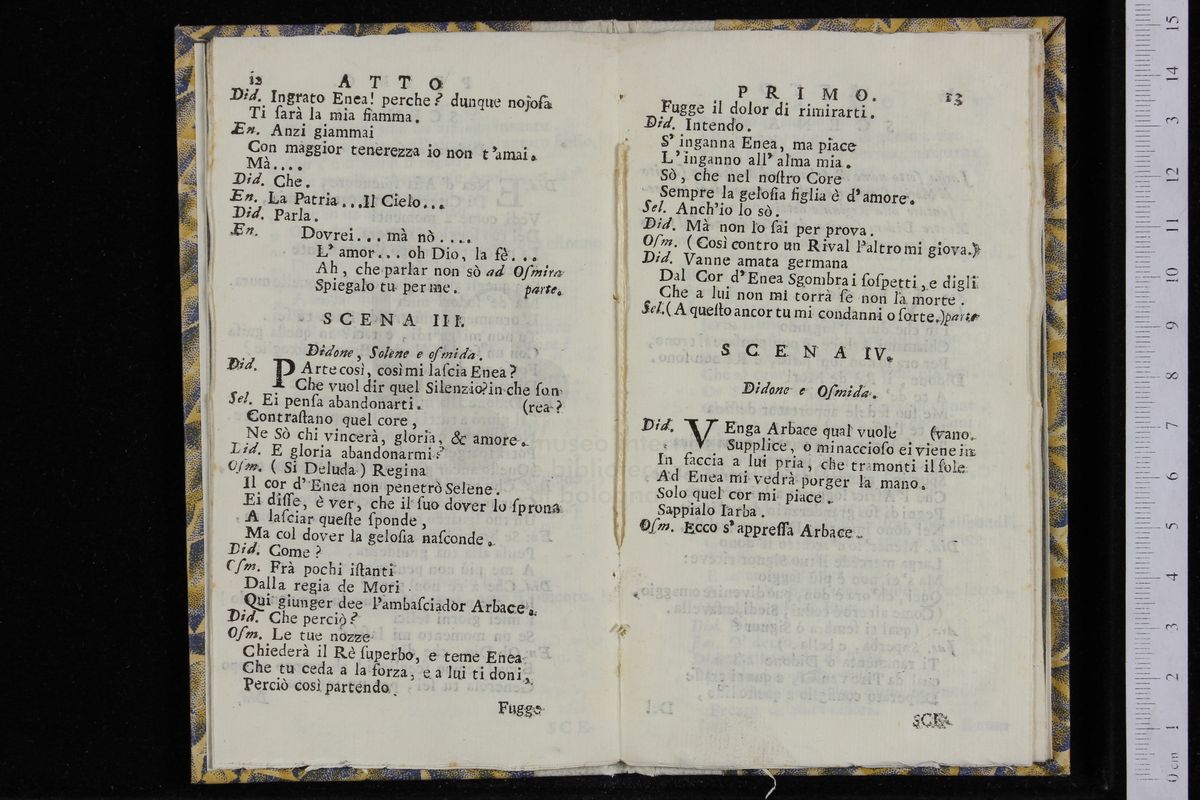 12 ATTO
Did. Ingrato Enea! perche? dunque nojoſa
Ti ſarà la mia fiamma.
En. Anzi giammai
Con maggior tenerezza io non t'amai.
Mà....
Did. Che.
En. La Patria...Il Cielo...
Did. Parla.
En. Dovrei... mà nò....
L'amor... oh Dio, la fè...
Ah, che parlar non sò ad Oſmira
Spiegalo tu per me. parte.
SCENA III.
Didone, Selene e oſmida.
Did. PArte così, così mi laſcia Enea?
Che vuol dir quel Silenzio? in che ſon
Sel. Ei penſa abandonarti. (rea?
Contraſtano quel core,
Ne Sò chi vincerà, gloria, & amore.
Did. E gloria abandonarmi?
Oſm. ( Si Deluda ) Regina
Il cor d'Enea non penetrò Selene.
Ei diſſe, è ver, che il ſuo dover lo ſprona
A laſciar queſte ſponde,
Ma col dover la geloſia naſconde.
Did. Come?
Oſm. Frà pochi iſtanti
Dalla regia de Mori
Qui giunger dee l'ambaſciador Arbace.
Did. Che perciò?
Oſm. Le tue nozze
Chiederà il Rè ſuperbo, e teme Enea
Che tu ceda a la forza, e a lui ti doni,
Perciò così partendo
Fugge
PRIMO. 13
Fugge il dolor di rimirarti.
Did. Intendo.
S'inganna Enea, ma piace
L'inganno all'alma mia.
Sò, che nel noſtro Core
Sempre la geloſia figlia è d'amore.
Sel. Anch'io lo sò.
Did. Mà non lo ſai per prova.
Oſm. ( Così contro un Rival l'altro mi giova.)
Did. Vanne amata germana
Dal Cor d'Enea Sgombra i ſoſpetti, e digli
Che a lui non mi torrà ſe non la morte.
Sel. ( A queſto ancor tu mi condanni o ſorte.) parte
SCENA IV.
Didone e Oſmida.
Did. VEnga Arbace qual vuole (vano.
Supplice, o minaccioſo ei viene in
In faccia a lui pria, che tramonti il ſole
Ad Enea mi vedrà porger la mano.
Solo quel cor mi piace.
Sappialo Iarba.
Oſm. Ecco s'appreſſa Arbace.
SCE-